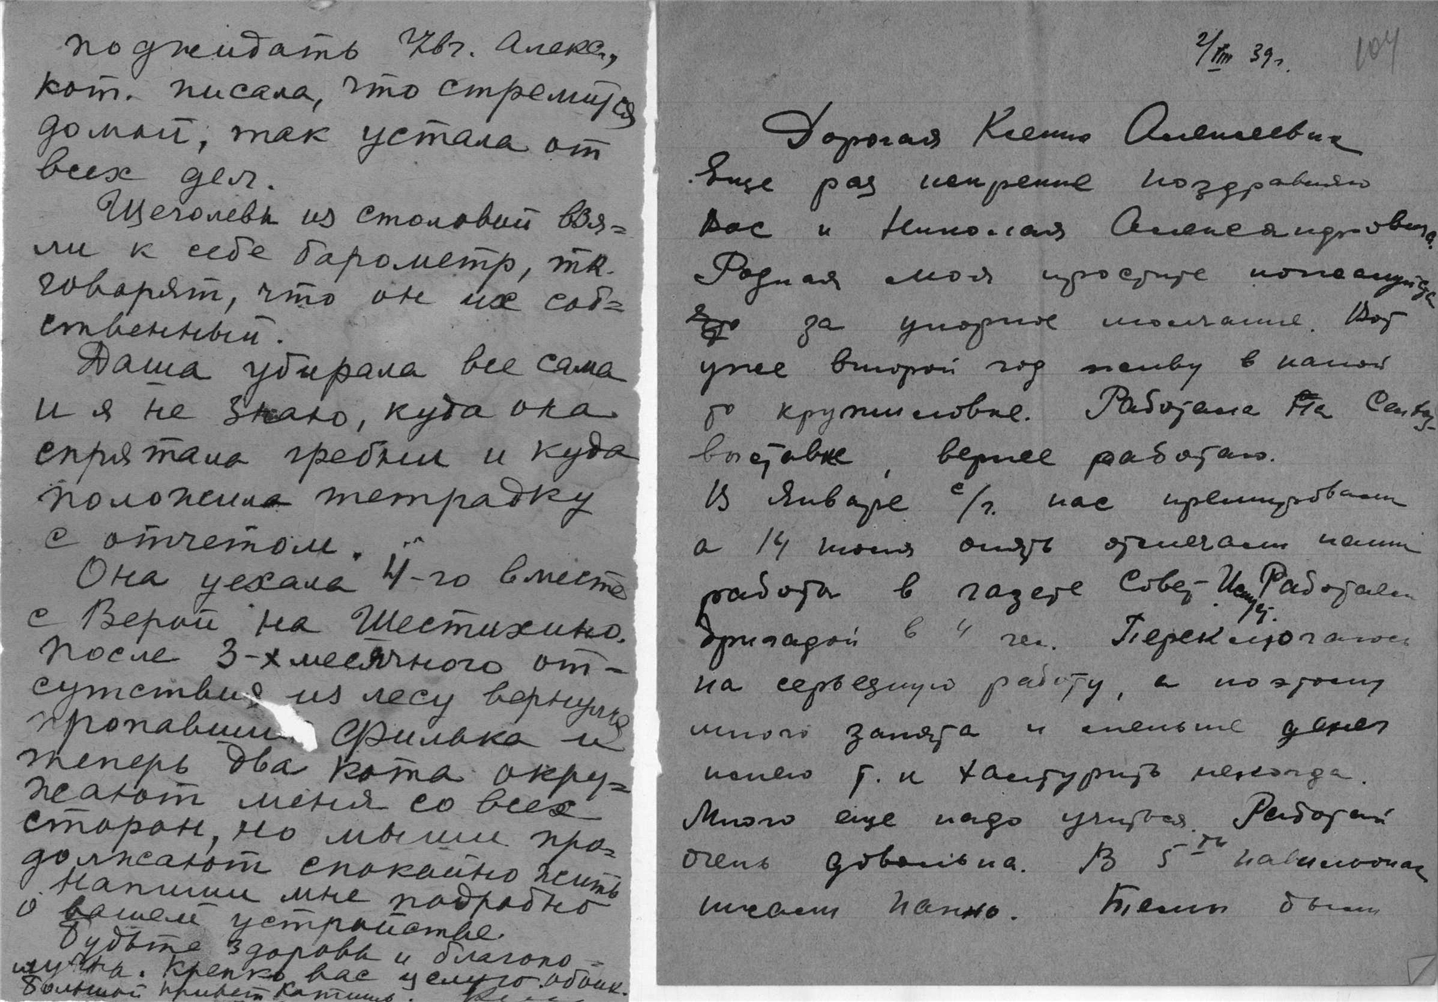 поджидать Евг. Алекс.,
кот. писала, что стремится
домой, так устала от
всех дел.
Щеголевы из столовой взя=
ли к себе барометр, тк.
говорят, что он их соб=
ственный.
Даша убирала все сама
и я не знаю, куда она
спрятала гребни и куда
положила тетрадку
с отчетом.
Она уехала 4-го вместе
с Верой на Шестихино.
После 3-х месячного от-
сутствия из лесу вернулся
пропавший Филька и
теперь два кота окру=
жают меня со всех
сторон, но мыши про=
должают спокойно жить
Напиши мне подробно
о вашем устройстве.
Будьте здоровы и благопо-
лучны. Крепко вас целую. обоих.
Большой привет
2/VIII 39 г.
104
Дорогая Ксения Алексеевна
Еще раз искренне поздравляю
Вас и Николая Александровича.
Родная моя простите пожалуйста
за упорное молчание. Вот
уже второй год живу в какой
то кружиловке. Работала на Сельхоз-
выставке, вернее работаю.
В Январе с/г. нас премировали
а 14 июля опять отмечали наши
работы в газете Совет Искус. Работаем
бригадой в 4 чел. Переключилась
на серьезную работу, а поэтому
много занята и меньше денег
имею т.к халтурить некогда.
Много еще надо учиться. Работой
очень довольна. В 5ти павильонах
писали панно. Темы были